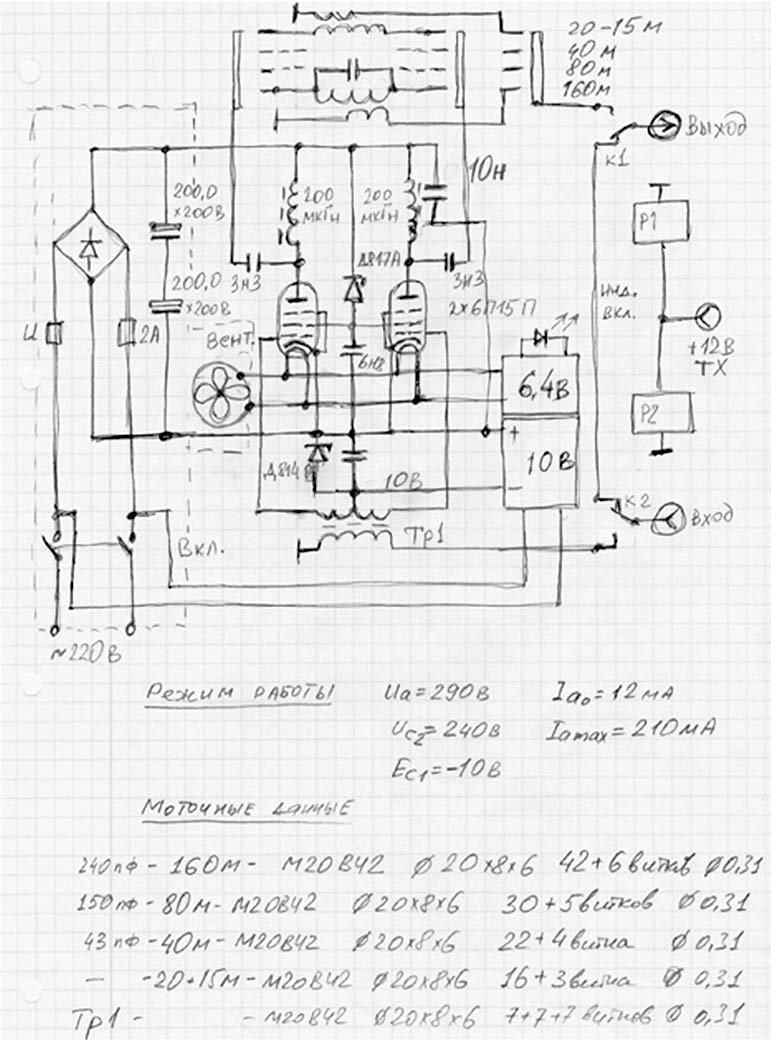 20-15м
40м
80м
160м
Выход
К1
10н
200,0
×200В
200
мкГн
200
мкГн
Р1
Д817А
3н3
3н3
200,0
×200В
2×6П15П
Инд.
вкл.
2А
Вент.
6н8
+12В
ТХ
6,4В
Р2
+
10В
Д814
10В
−
К2
Вход
Тр1
Вкл.
~220В
Режим работы Uа=290в Iа₀=12мА
Uс₂=240в Iаmax=210мА
Ес₁=-10в
Моточные данные
240пф - 160м - М20ВЧ2 Ø20×8×6 42+6витков Ø0,31
150пф - 80м - М20ВЧ2 Ø20×8×6 30+5витков Ø0,31
43пф - 40м - М20ВЧ2 Ø20×8×6 22+4витка Ø0,31
— -20+15м - М20ВЧ2 Ø20×8×6 16+3витка Ø0,31
Тр1 - - М20ВЧ2 Ø20×8×6 7+7+7витков Ø0,31